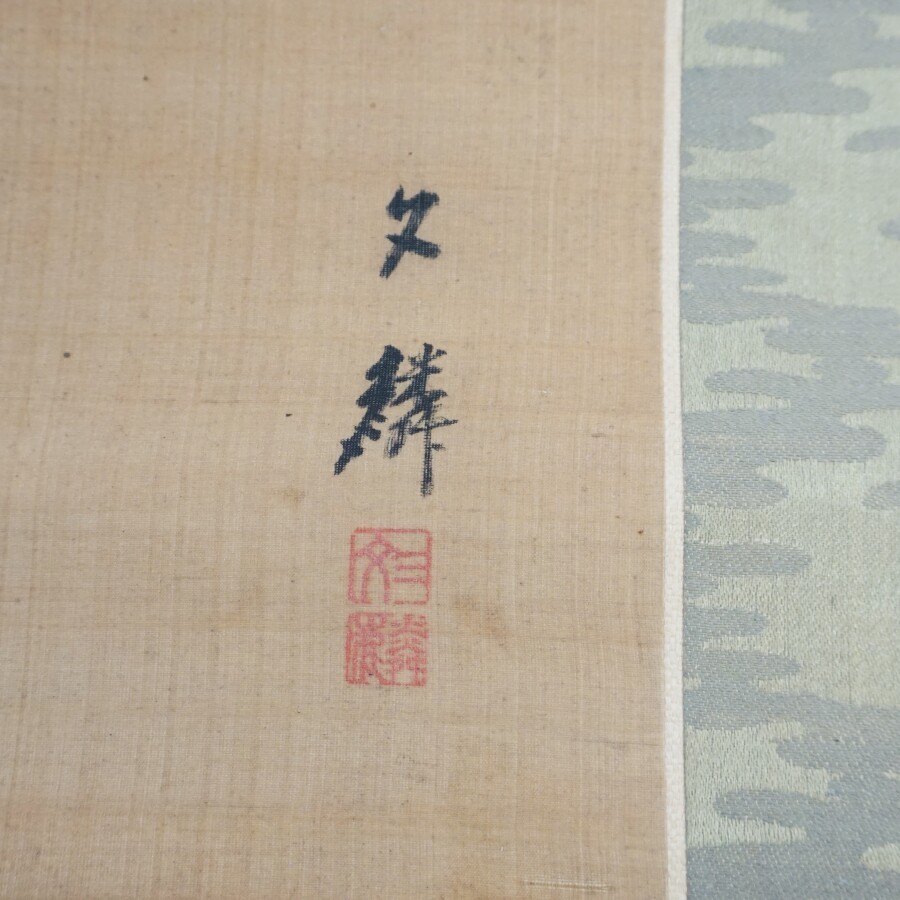 文麟
文
麟